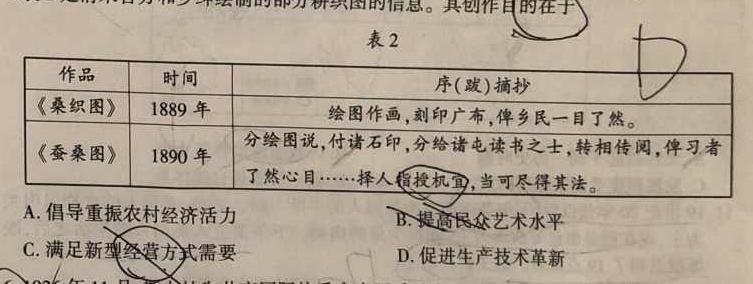 绘制的部分耕织图的信息。其创作目的在于
表2
作品 时间 序(跋)摘抄
《桑织图》 1889年 绘图作画,刻印广布,俾乡民一目了然。
《蚕桑图》 1890年 分绘图说,付诸石印,分给诸屯读书之士,转相传阅,俾习者
了然心目……择人指授机宜,当可尽得其法。
D
A. 倡导重振农村经济活力 B. 提高民众艺术水平
C. 满足新型经营方式需要 D. 促进生产技术革新